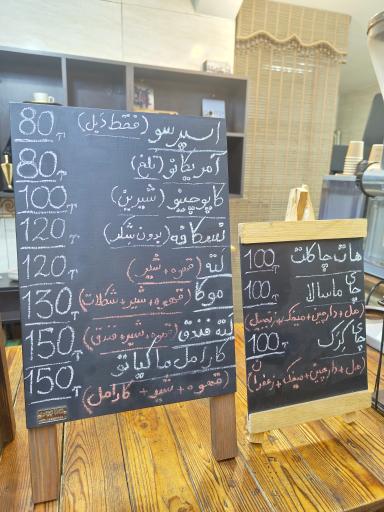 اسپرسو (فقط دبل) 80 T
آمریکانو (تلخ) 80 T
کاپوچینو (شیرین) 100 T
نسکافه (بدون شکر) 120 T
لته (قهوه + شیر) 120 T
موکا (قهوه + شیر + شکلات) 130 T
لته فندق (قهوه + شیر + فندق) 150 T
کارامل ماکیاتو 150 T
(قهوه + شیر + کارامل)
هات چاکلت 100 T
چای ماسالا 100 T
(هل + دارچین + میخک + زنجبیل)
چای کرک 100 T
(هل + دارچین + میخک + زعفران)